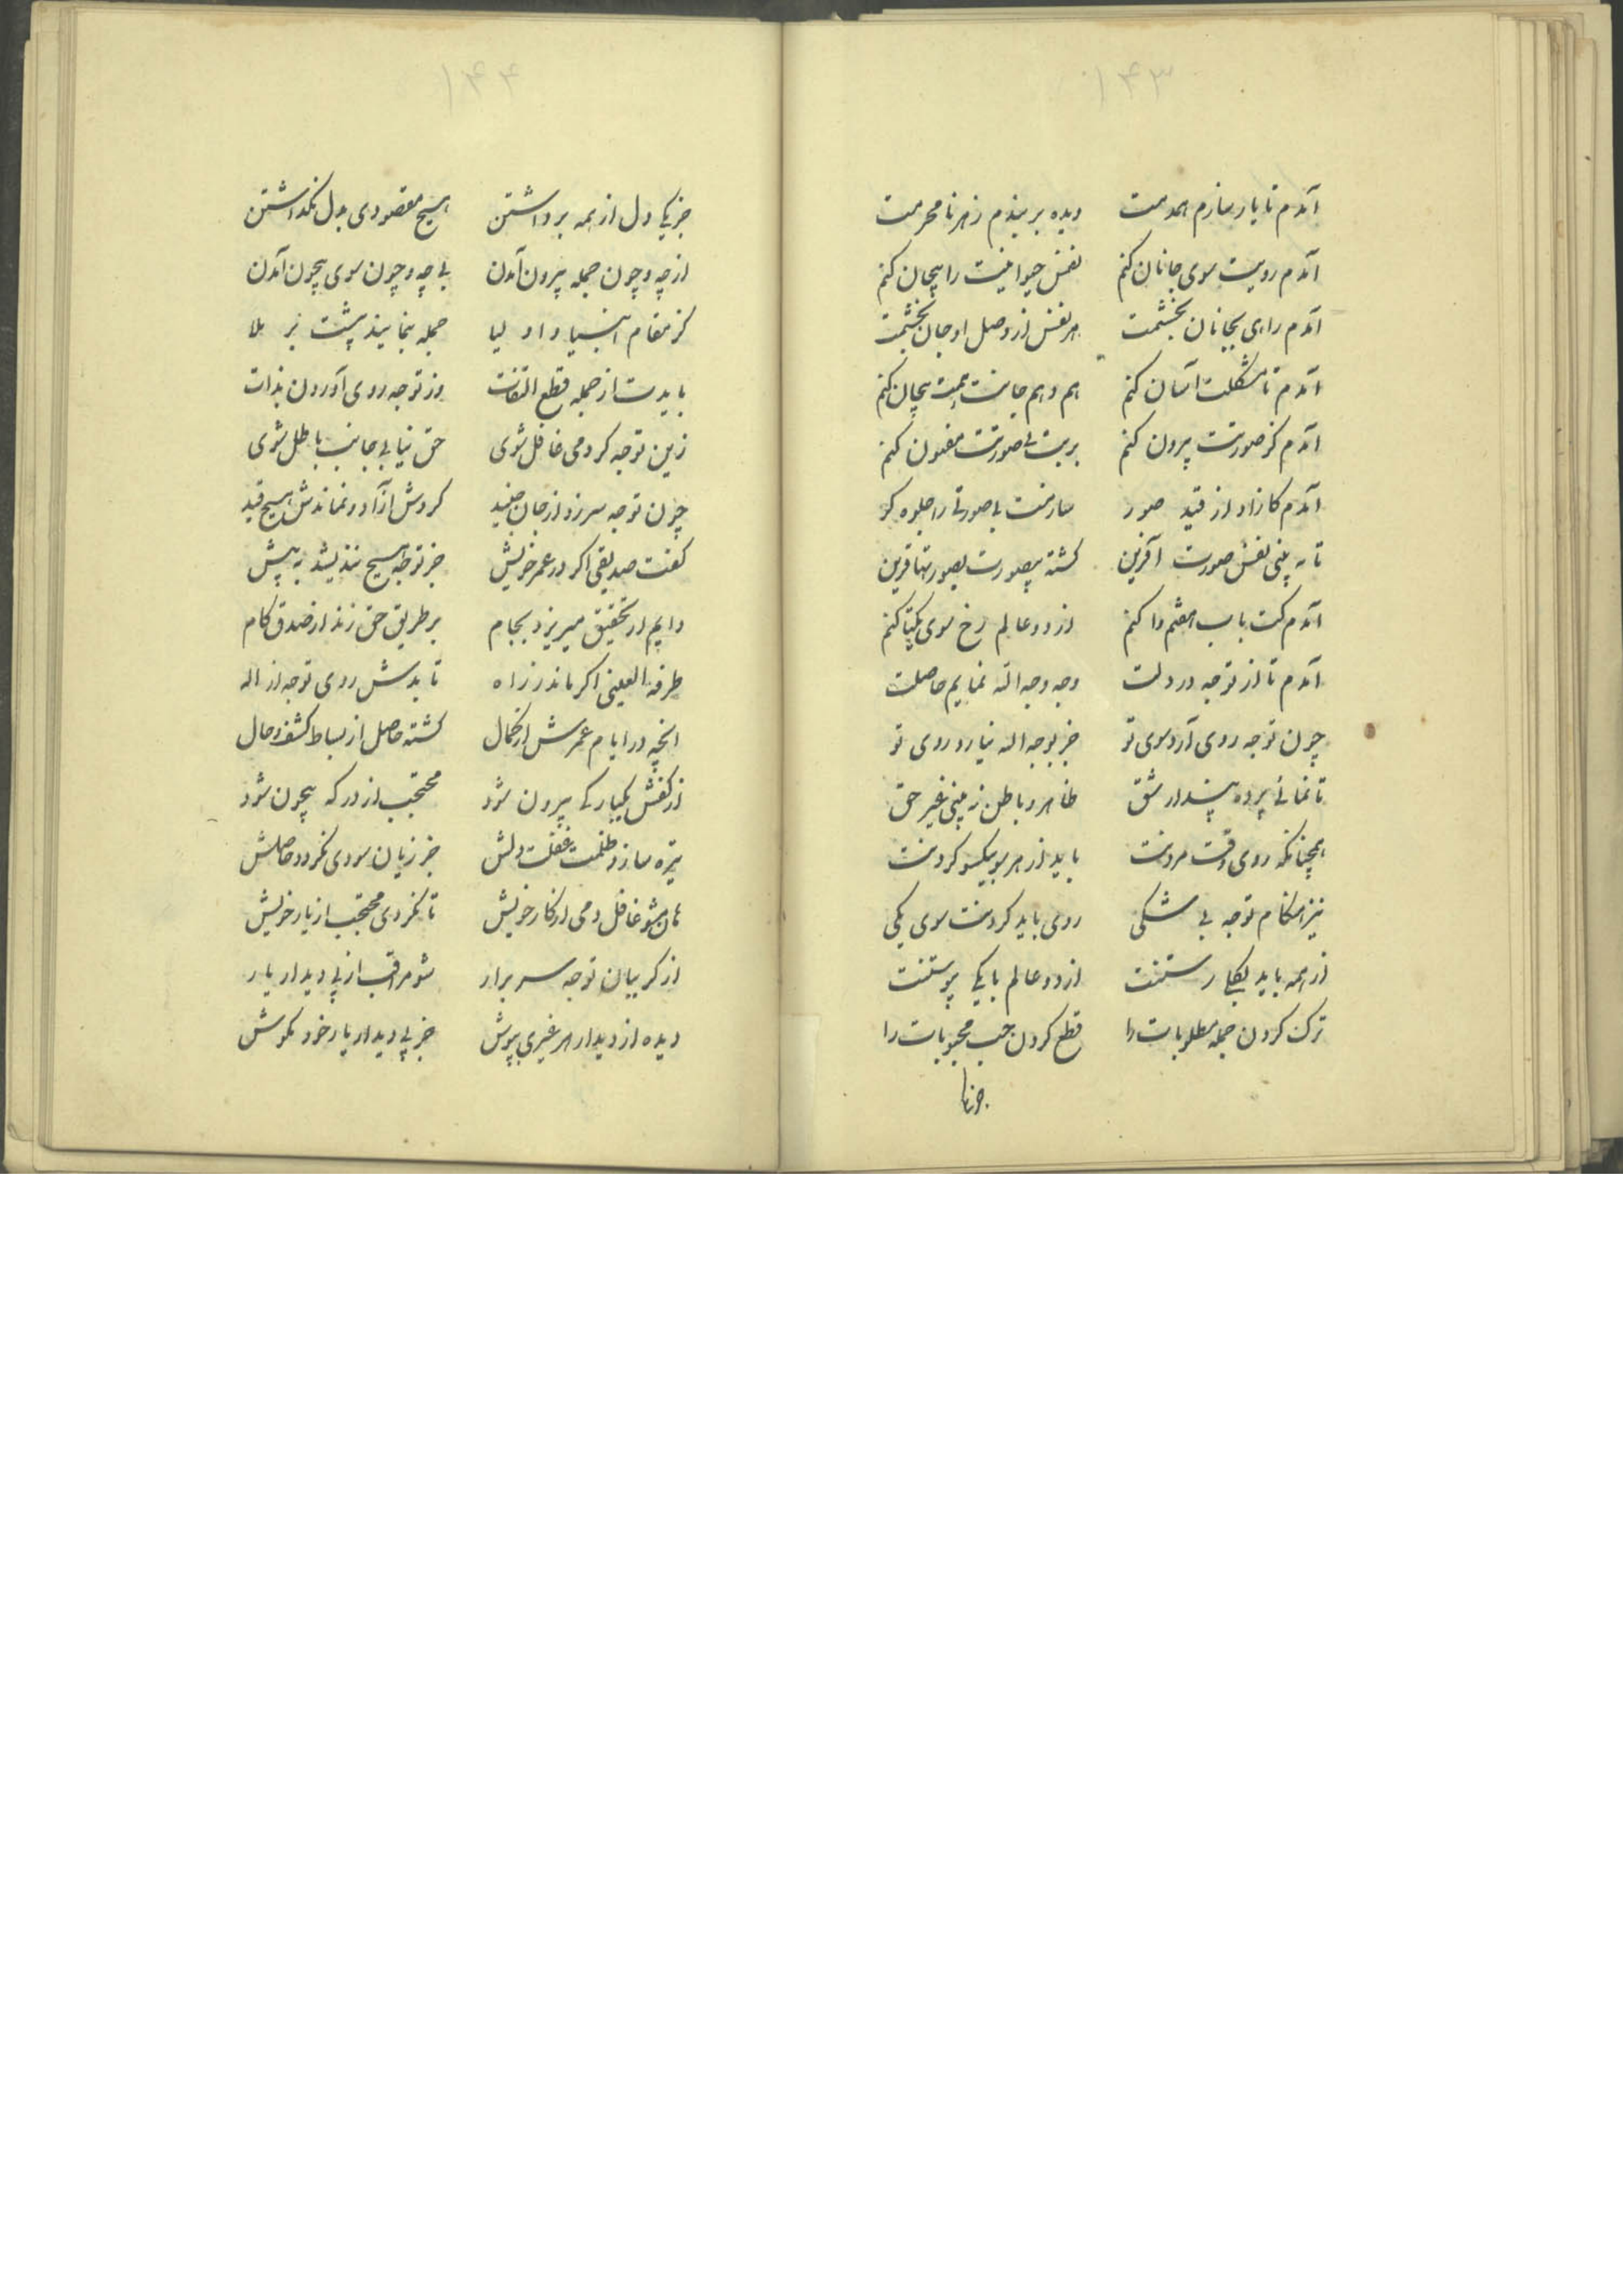 ۱۴۳
آمدم تا یار سازم همدمت دیده بربندم ز هر نامحرمت
آمدم رویت سوی جانان کنم نفس حیوانیت را بیجان کنم
آمدم راهی بجانان بخشمت هر نفس از وصل او جان بخشمت
آمدم تا مشکلت آسان کنم هم و هم جانت بیجان کنم
آمدم کز صورتت بیرون کنم بربت بی صورتت مفتون کنم
آمدم کازاد از قید صور سازمت بی صورتی را جلوه کر
تا به بینی نفس صورت آفرین کشته بیصورت بصورتها قرین
آمدم کت باب هفتم وا کنم از دو عالم رخ سوی یکتا کنم
آمدم تا از توجه در دلت وجه وجه الله نمایم حاصلت
چون توجه روی آرد سوی تو جز بوجه اله نیارد روی تو
تا نمائی پرده پندار شق ظاهر و باطن نه بینی غیر حق
همچنانکه روی وقت مردنت باید از هر سو بیکسو کردنت
نیز هنکام توجه بی شکی روی باید کردنت سوی یکی
از همه باید بکلی رستنت از دو عالم با یکی پیوستنت
ترک کردن جمله مطلوبات را قطع کردن حب محبوبات را
جز یکی
۱۴۴
جز یکی دل از همه برداشتن هیچ مقصودی بدل نکذاشتن
از چه و چون جمله بیرون آمدن بی چه و چون سوی بیچون آمدن
کز مقام انبیا و اولیا جمله بنمایند پشت بر بلا
بایدت از جمله قطع التفات وز توجه روی آوردن بذات
زین توجه کر دمی غافل شوی حق نیابی جانب باطل شوی
چون توجه سر زد از جان جنید کردش آزاد و نماندش هیچ قید
کفت صدیقی اکر در عمر خویش جز توجه هیچ نندیشد به پیش
دایم از تحقیق میریزد بجام بر طریق حق زند از صدق کام
طرفة العینی اکر ماند ز راه تابدش روی توجه از اله
انچه در ایام عمرش از کمال کشته حاصل از بساط کشف و حال
از کفش یکبارکی بیرون شود محتجب از درکه بیچون شود
تیره سازد ظلمت غفلت دلش جز زیان سودی نکردد حاصلش
هان مشو غافل دمی از کار خویش تا نکردی محتجب از یار خویش
از کریبان توجه سر برار شو مراقب از پی دیدار یار
دیده از دیدار هر غیری بپوش جز پی دیدار یار خود مکوش